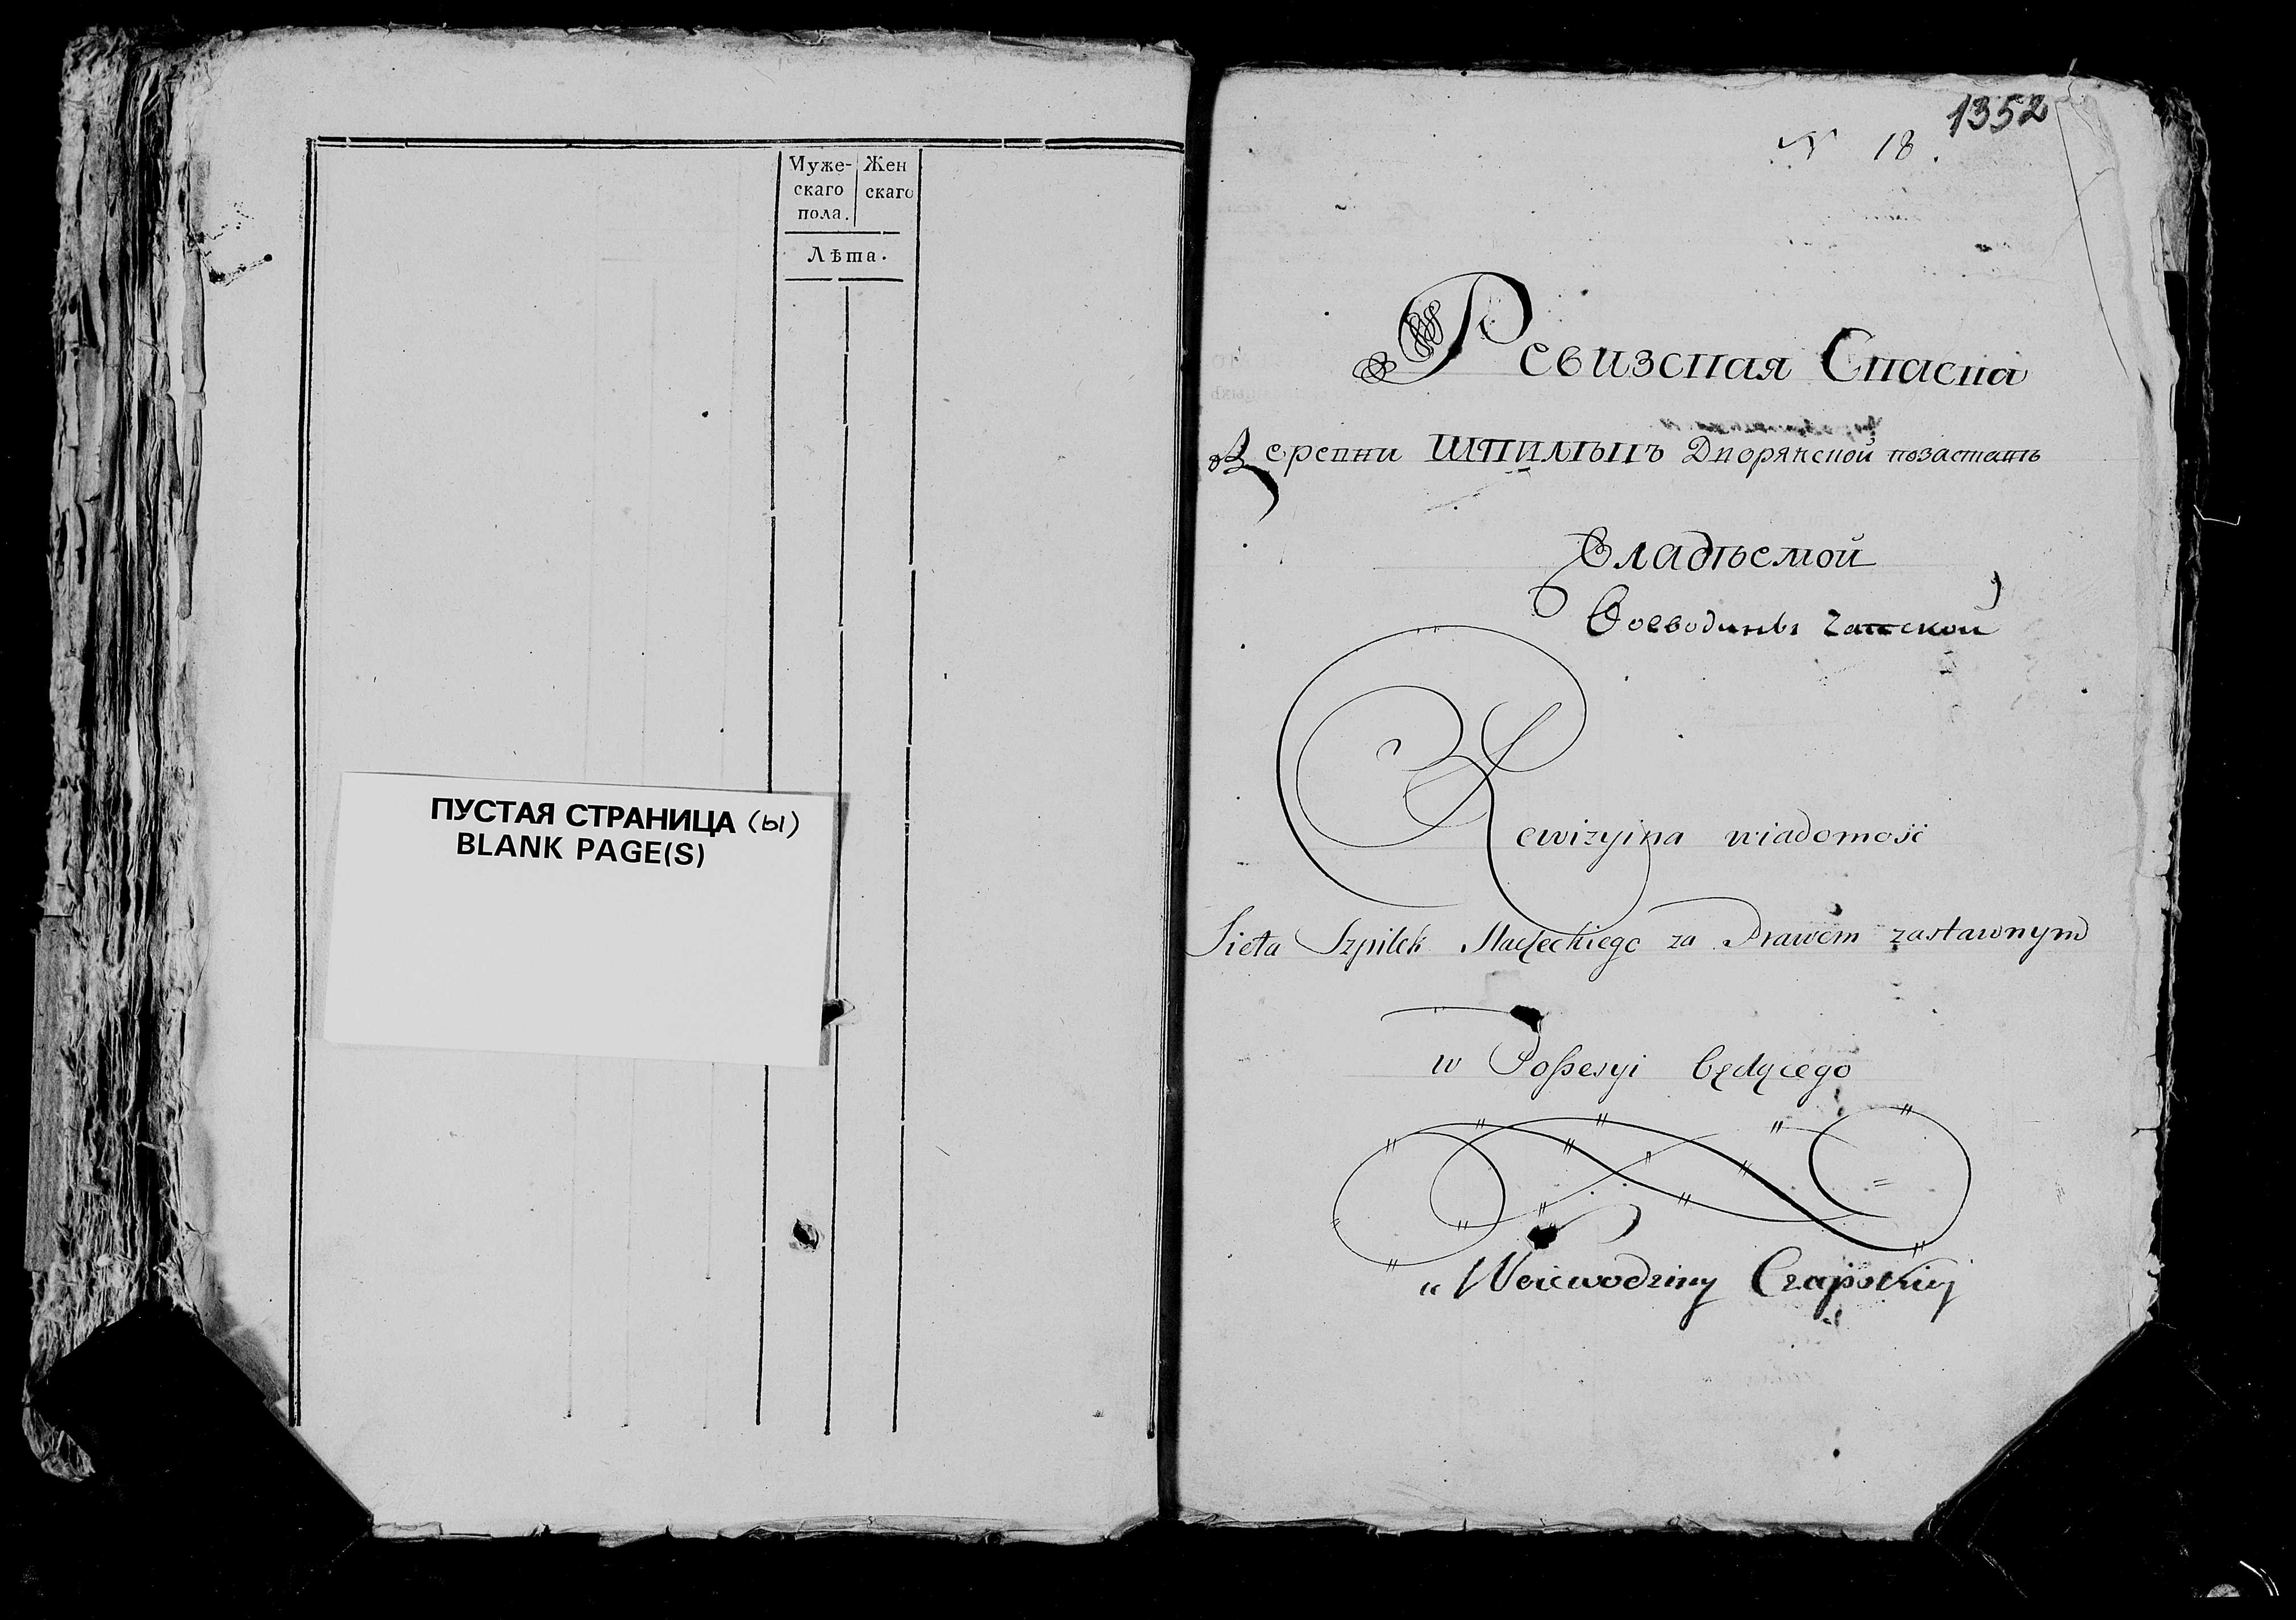 Муже-
скаго
пола.
Жен
скаго
Лѣта.
ПУСТАЯ СТРАНИЦА (ы)
BLANK PAGE(S)
1352
N 18.
Ревизская Спаска
Деревни Шпилѣкъ Дворянской позаставѣ
Владѣемой
Воеводины
Rewizyina wiadomość
Sieła Szpilek Szlacheckiego za Prawem zastawnym
w Poſsesyi będącego
„Woiewodziny Czapskiey